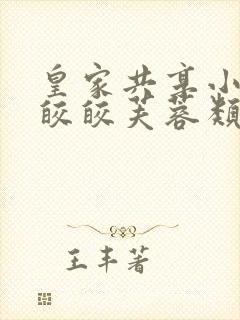 皇家共享小
皎皎芙蓉颊
王丰著